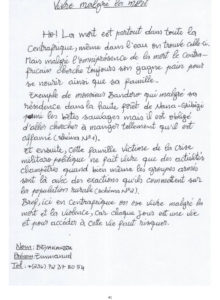 Vivre malgré la mort
Hé! La mort est partout dans toute la
Centrafrique, même dans l'eau on trouve celle-ci.
Mais malgré l'omniprésence de la mort le centra-
fricain cherche toujours son gagne pain pour
se nourir ainsi que sa famille.
Exemple de monsieur Bandoro qui malgré sa
résidence dans la haute forêt de
parmi les bêtes sauvages mais il est obligé
d'aller chercher à manger tellement qu'il est
affamé (schéma N°1).
Et ensuite, cette famille victime de la crise
militaro politique ne fait vivre que des activités
champêtre quand bien même les groupes armés
sont là avec des exactions qu'ils commettent sur
la population rurale (schéma N°2).
Bref, ici en Centrafrique on ose vivre malgré la
mort et la violence, car chaque jour est une vie
et pour accéder à cette vie faut risquer.
Nom:
Prénom: Emmanuel
Tel: